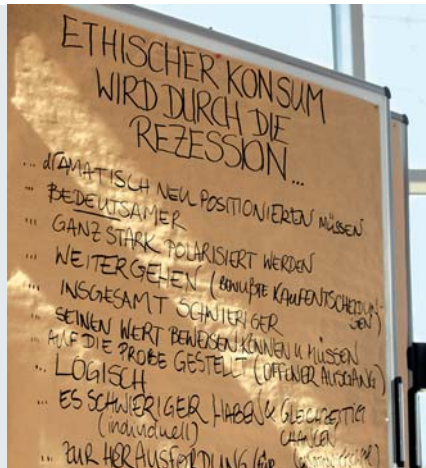 ETHISCHER KONSUM
WIRD DURCH DIE
REZESSION...
... dRAMATISCH NEU POSITIONIEREN MÜSSEN
... BEDEUTSAMER
... GANZ STARK POLARISIERT WERDEN
... WEITERGEHEN (BEWUßTE KAUFENTSCHEIDUN-
GEN)
... INSGESAMT SCHWIERIGER
... SEINEN WERT BEWEISEN KÖNNEN U. MÜSSEN
... AUF DIE PROBE GESTELLT (OFFENER AUSGANG)
... LOGISCH
... ES SCHWIERIGER HABEN U. GLEICHZEITIG
(individuell) CHANCEN
... ZUR HERAUSFORDUNG FÜR